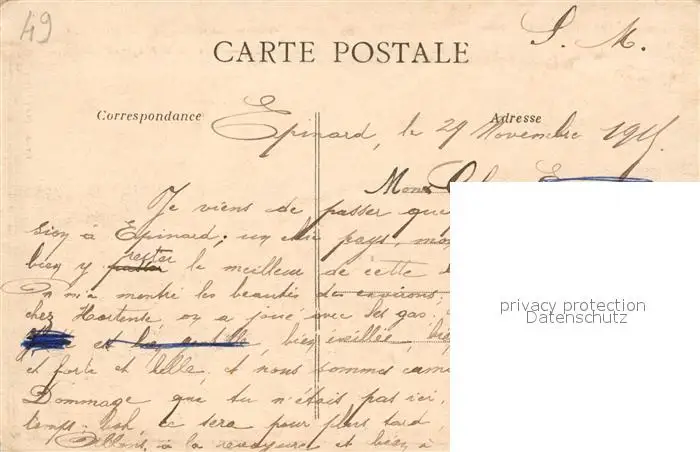 49
S. M.
CARTE POSTALE
Correspondance
Adresse
Epinard, le 29 Novembre 1915.
Mon
Je viens de passer que
à Epinard; un chic pays, mo
bien y rester le meilleur de cette
On m'a montré les beautés des environs;
chez Hortense on a joué avec les gas.
est très gentille, bien éveillée, bie
et forte et belle. et nous sommes cama
Dommage que tu n'étais pas ici,
temps. Bah, ce sera pour plus tard,
Allons, à la revoyure et bien à
privacy protection
Datenschutz